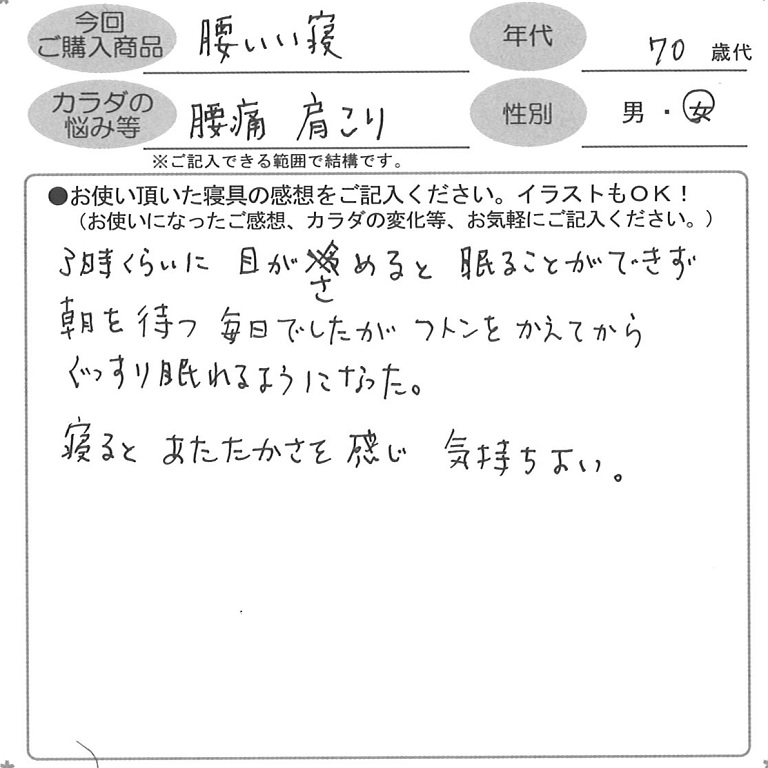 今回ご購入商品 腰いい寝 年代 70 歳代
カラダの悩み等 腰痛 肩こり 性別 男・女
※ご記入できる範囲で結構です。
●お使い頂いた寝具の感想をご記入ください。イラストもOK！
（お使いになったご感想、カラダの変化等、お気軽にご記入ください。）
3時くらいに 目がさめると 眠ることができず
朝を待つ 毎日でしたが フトンをかえてから
ぐっすり眠れるようになった。
寝ると あたたかさを感じ 気持ちよい。